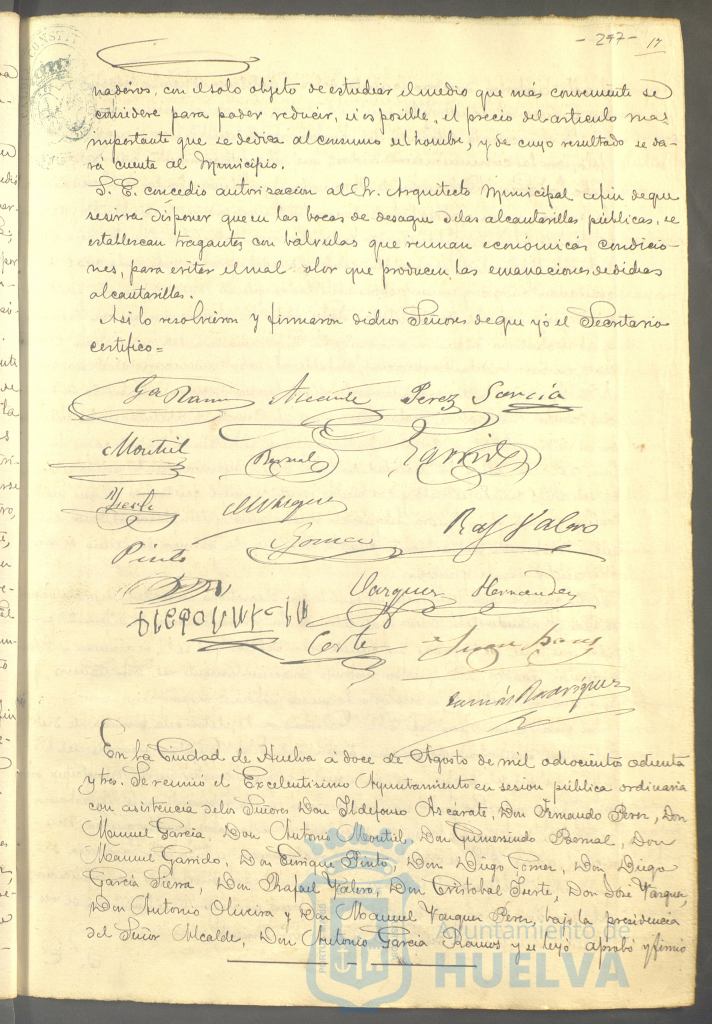 - 297 - 17
naderos, con el solo objeto de estudiar el medio que más conveniente se
considere para poder reducir, si es posible, el precio del artículo mas
importante que se dedica al consumo del hombre, y de cuyo resultado se da-
rá cuenta al Municipio.
S. E. concedio autorizacion al Sr. Arquitecto Municipal afin de que
se sirva disponer que en las bocas de desague delas alcantarillas públicas, se
establezcan tragantes con bálvulas que reunan económicas condicio-
nes, para evitar el mal olor que producen las emanaciones de dichas
alcantarillas.
Asi lo resolvieron y firmaron dichos Señores de que yó el Secretario
certifico =
Ga Ramos Azcarate Perez Garcia
Montiel Bernal Garrido
Fierte M Vazquez
Gomez Raf Valero
Pinto
Vazquez Hernandez
Corte
Ramón Rodriguez
En la Ciudad de Huelva á doce de Agosto de mil ochocientos ochenta
y tres. Se reunió el Excelentisimo Ayuntamiento en sesion pública ordinaria
con asistencia delos Señores Don Ildefonso Azcarate, Don Armando Perez, Don
Manuel Garcia, Don Antonio Montiel, Don Gumersindo Bernal, Don
Manuel Garrido, Don Enrique Pinto, Don Diego Gomez, Don Diego
Garcia Sierra, Don Rafael Valero, Don Cristobal Fierte, Don José Vazquez,
Don Antonio Oliveira y Don Manuel Vazquez Perez, bajo la presidencia
del Señor Alcalde, Don Antonio Garcia Ramos y se leyó aprobó y firmó
Ayuntamiento de
HUELVA